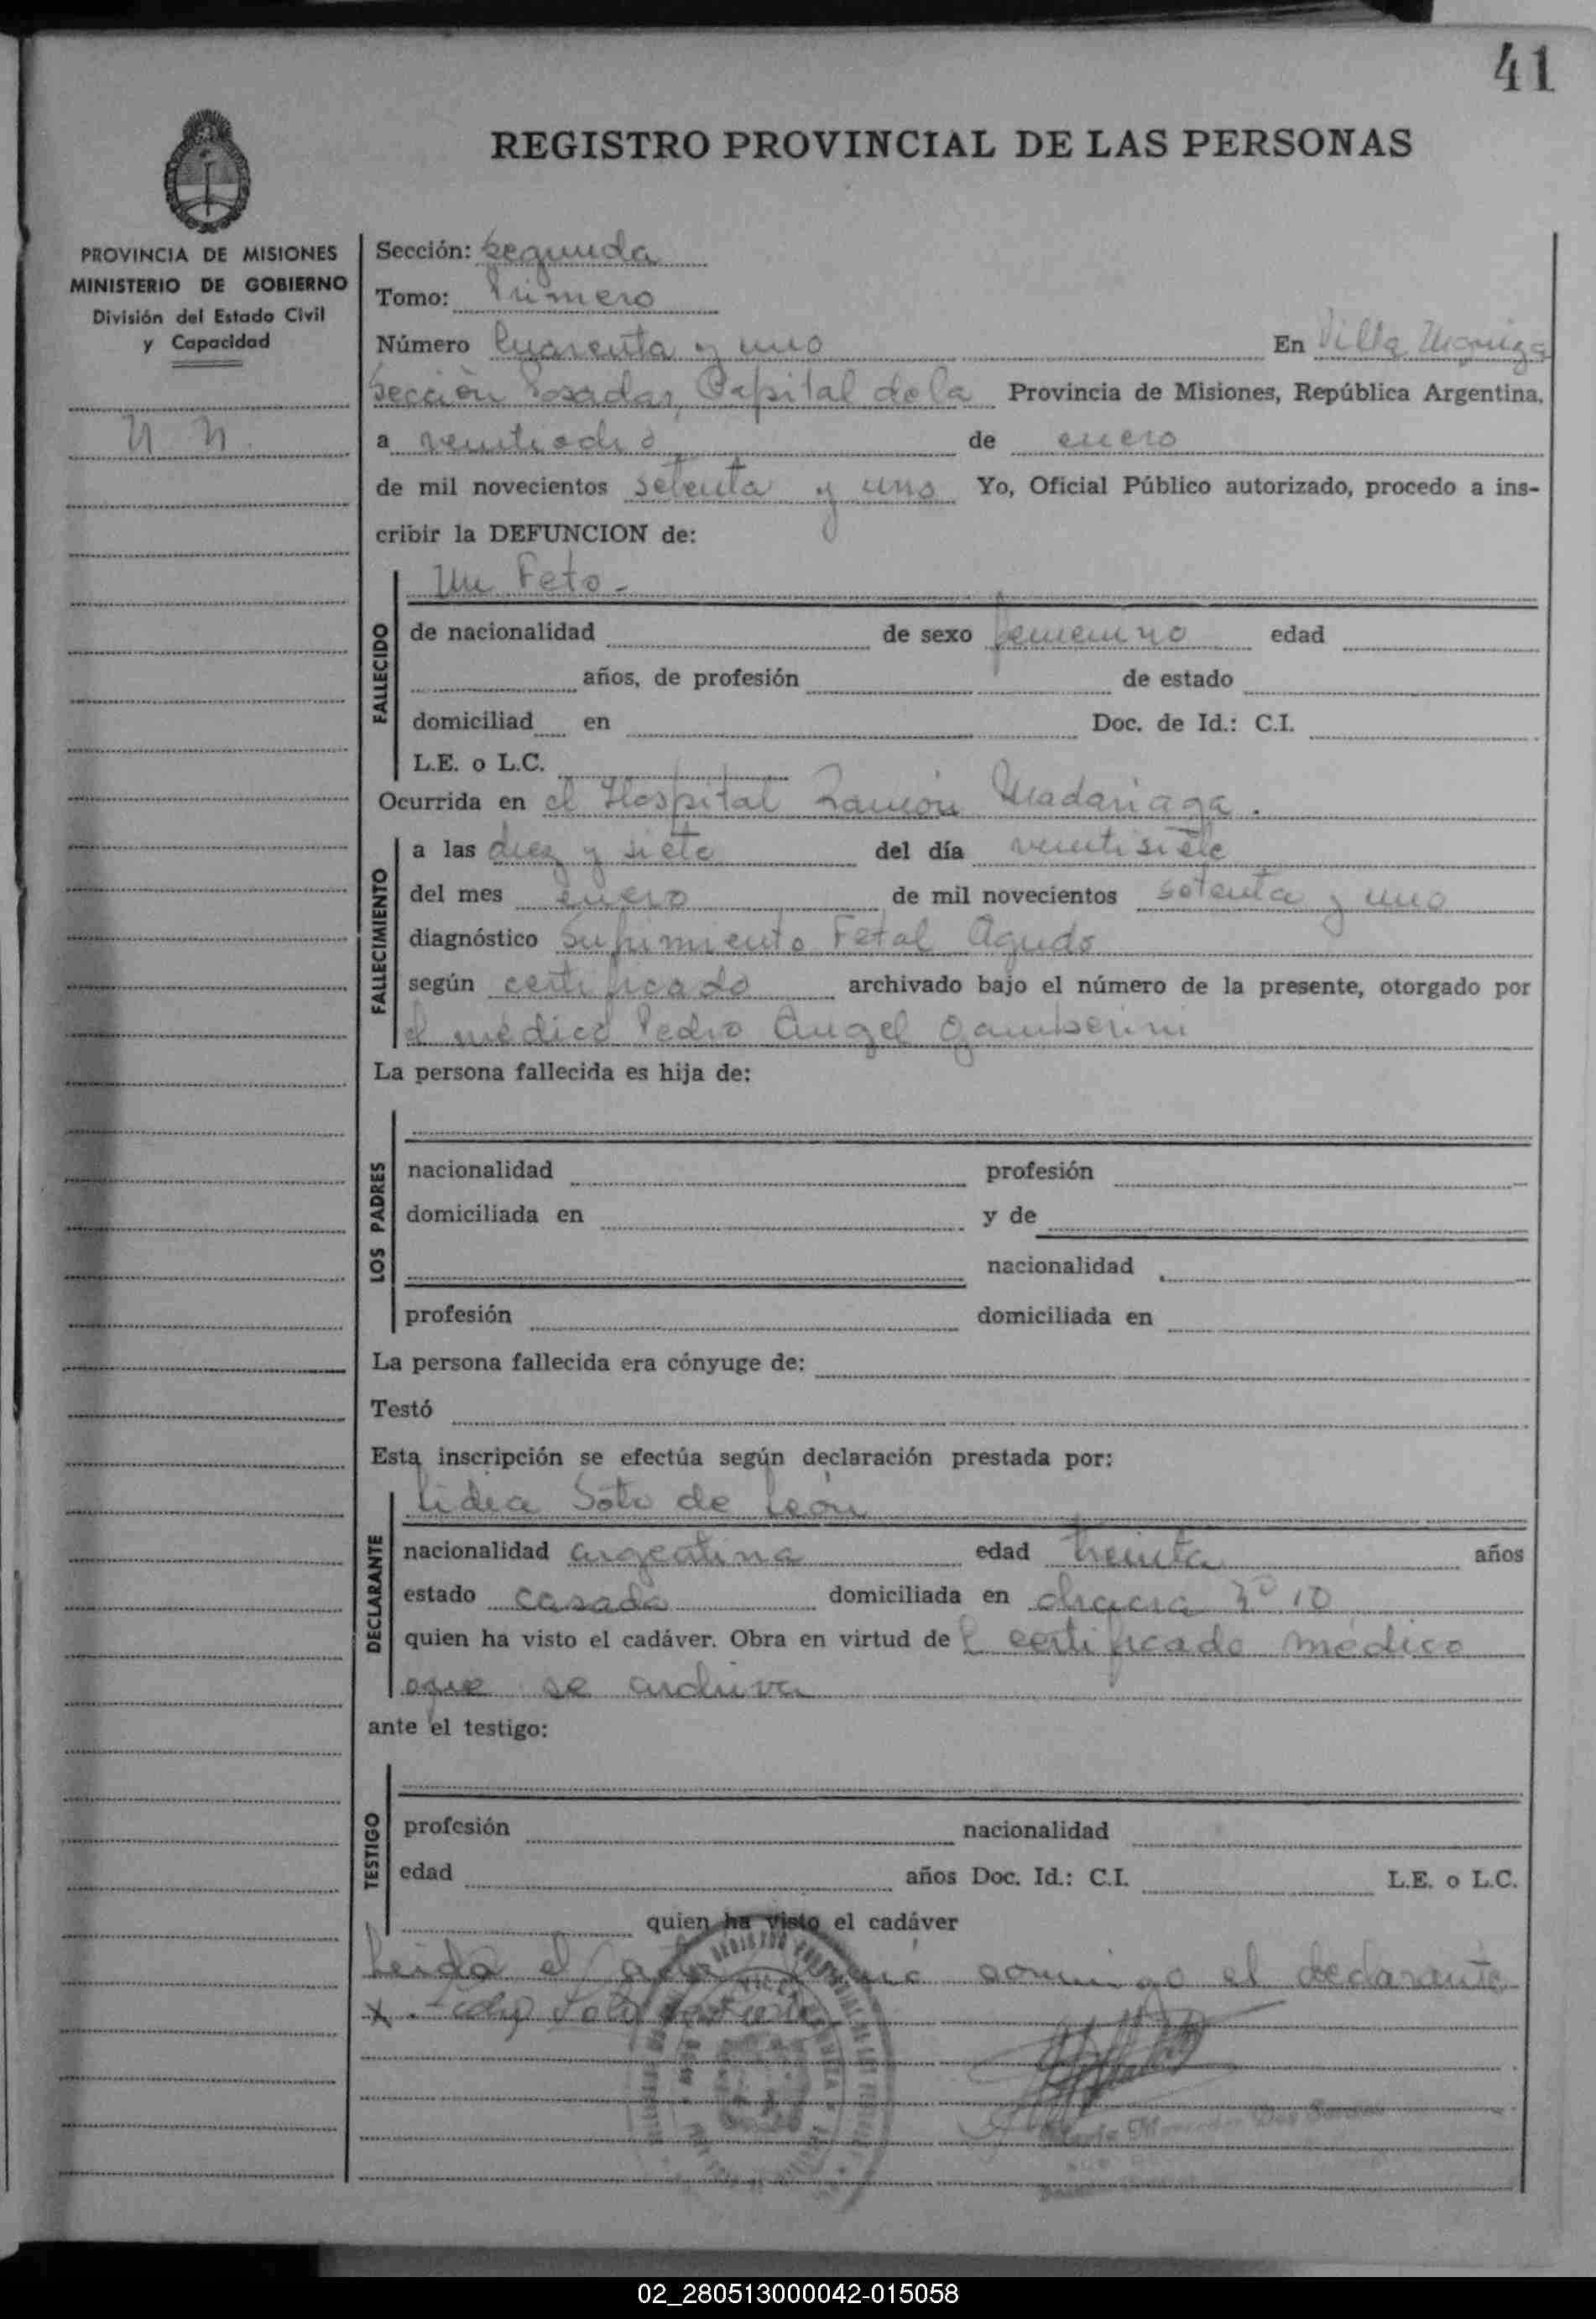 41
REGISTRO PROVINCIAL DE LAS PERSONAS
PROVINCIA DE MISIONES
MINISTERIO DE GOBIERNO
División del Estado Civil
y Capacidad
N N.
Sección: Segunda
Tomo: Primero
Número Cuarenta y uno En Villa Urquiza
Sección Posadas, Capital de la Provincia de Misiones, República Argentina,
a veintiocho de enero
de mil novecientos setenta y uno Yo, Oficial Público autorizado, procedo a ins-
cribir la DEFUNCION de:
Un Feto-
FALLECIDO
de nacionalidad de sexo femenino edad
años, de profesión de estado
domiciliad en Doc. de Id.: C.I.
L.E. o L.C.
Ocurrida en el Hospital Ramón Madariaga.
FALLECIMIENTO
a las diez y siete del día veintisiete
del mes enero de mil novecientos setenta y uno
diagnóstico Sufrimiento Fetal Agudo
según certificado archivado bajo el número de la presente, otorgado por
el médico Pedro Angel Gamberini
La persona fallecida es hija de:
LOS PADRES
nacionalidad profesión
domiciliada en y de
nacionalidad
profesión domiciliada en
La persona fallecida era cónyuge de:
Testó
Esta inscripción se efectúa según declaración prestada por:
Lidia Soto de León
DECLARANTE
nacionalidad argentina edad treinta años
estado casada domiciliada en chacra Nº 10
quien ha visto el cadáver. Obra en virtud del certificado médico
que se archiva
ante el testigo:
TESTIGO
profesión nacionalidad
edad años Doc. Id.: C.I. L.E. o L.C.
quien ha visto el cadáver
Leida el acta firmó conmigo el declarante
x Soto
Dos Santos
02_280513000042-015058